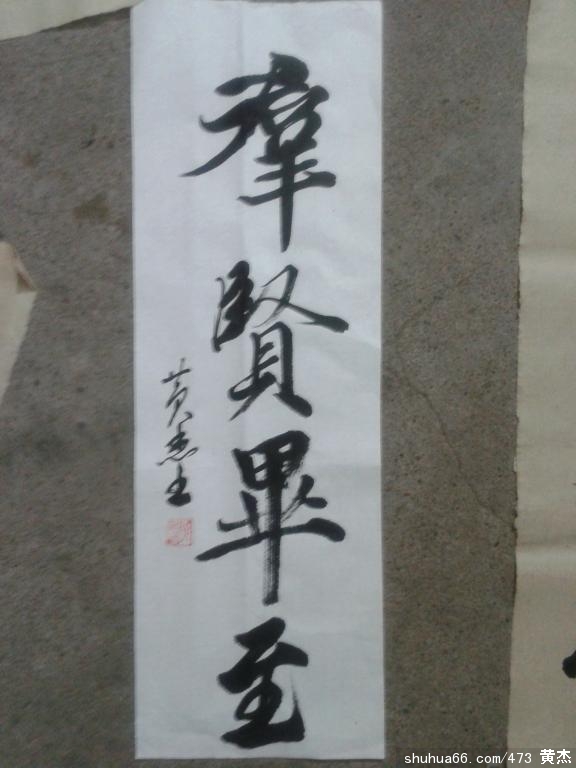 羣賢畢至
黄杰
shuhua66.com/473 黄杰